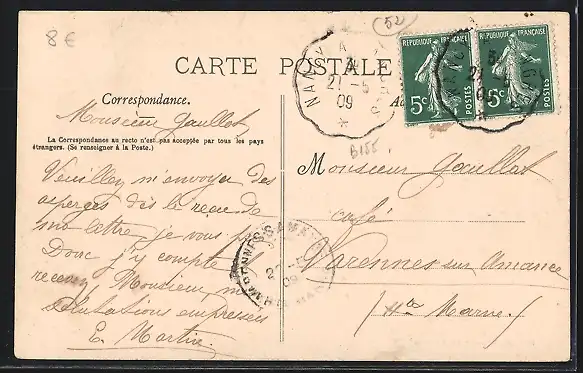 8 €
52
CARTE POSTALE
RÉPUBLIQUE FRANÇAISE
5c
POSTES
RÉPUBLIQUE FRANÇAISE
5c
POSTES
NANCY
21-5
09
Correspondance.
La Correspondance au recto n'est pas acceptée par tous les pays
étrangers. (Se renseigner à la Poste.)
Monsieur Gaullat
Veuillez m'envoyer des
asperges dès le reçu de
ma lettre je vous
Donc j'y compte
recevez Monsieur, m
salutations empressées
E. Martin
B155
Monsieur Gaullat
café
Varennes sur Amance
(Hte Marne)
VARENNES-S-AMANCE
09